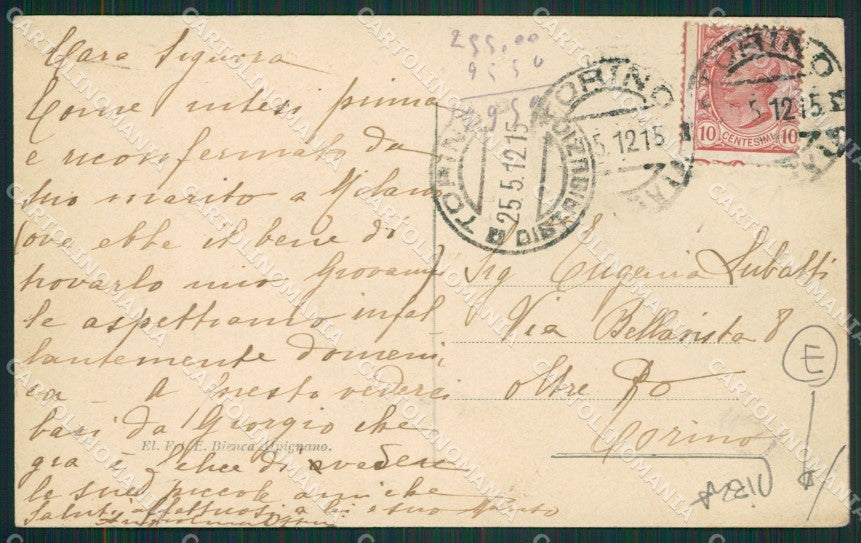 Cara Signora
Come intesi prima
e riconfermato da
suo marito a Milano
(ove ebbe il bene di
trovarlo mio Giovanni)
le aspettiamo infal
lantemente domeni,
ca - A questo vederci
baci da Giorgio che
già è felice di rivedere
le sue piccole amiche
Saluti affettuosi a lei e suo marito
El. Fot. E. Bienca Alpignano.
255,00
95 50
2950
TORINO
25.5.1215
DISTRIBUZIONE
TORINO
5.1215
TORINO
5.1215
10 CENTESIMI 10
Sig Eugenia Lubatti
Via Bellavista 8
oltre Po
Torino
E
CARTOLINOMANIA